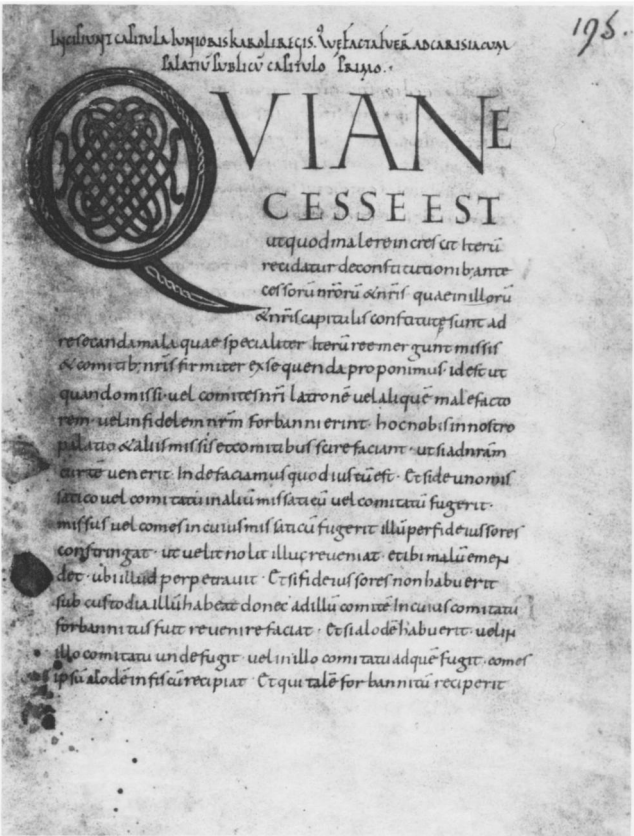 195.
INCIPIUNT CAPITULA IUNIORIS KAROLI REGIS. QUE FACTA FUER̄ AD CARISIACUM
PALATIŪ PUBLICŪ CAPITULO PRIMO.
QVIANE
CESSE EST
ut quod male reincrescit iterū
recidatur de constitutionib; ante
cessorū nr̄orū & nr̄is quae in illorū
& nr̄is capitulis constitutę sunt ad
resecanda mala quae specialiter iterū reemergunt missis
& comitib; nr̄is firmiter exsequenda proponimus id est ut
quando missi vel comites nr̄i latronē vel aliquē malefacto
rem vel infidelem nr̄m forbannierint hoc nobis in nostro
palatio & aliis missis et comitibus scire faciant ut si ad nr̄am
curtē venerit Inde faciamus quod iustū est Et si de uno mis
satico vel comitatu in aliū missaticū vel comitatū fugerit
missus vel comes in cuius missaticū fugerit illū per fideiussores
constringat ut velit nolit illuc reveniat et ibi malū emen
det ubi illud perpetravit Et si fideiussores non habuerit
sub custodia illū habeat donec ad illū comitē In cuius comitatu
forbannitus fuit revenire faciat Et si alodē habuerit vel in
illo comitatu unde fugit vel in illo comitatu ad quē fugit comes
ipsū alodē in fiscū recipiat Et qui talē forbannitū reciperit